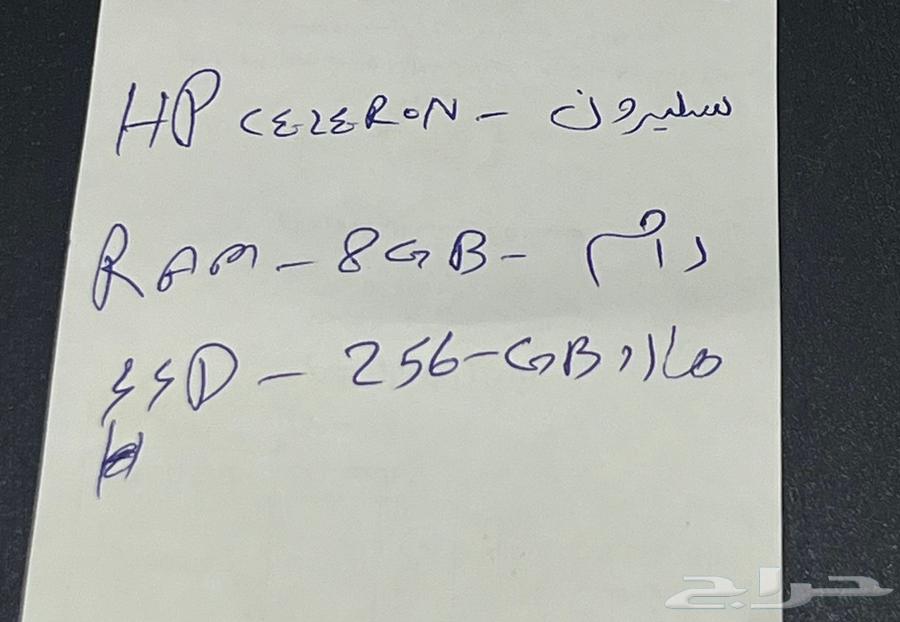 HP CELERON - سليرون
RAM - 8GB - رام
SSD - 256-GB هارد
حراج